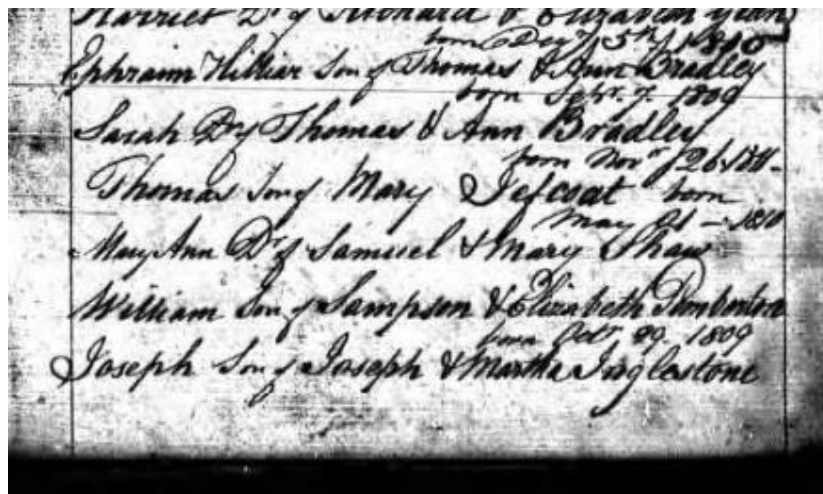 Harriet Dr of Richard & Elizabeth
born Decr 5th 1810
Ephraim Hilliar Son of Thomas & Ann Bradley
born Sepr. 7. 1809
Sarah Dr Thomas & Ann Bradley
born Novr 26
Thomas Son of Mary Jefcoat born
May 21 - 1810
Mary Ann Dr of Samuel & Mary Shaw
William Son of Sampson & Elizabeth Pemberton
born Octr 29. 1809
Joseph Son of Joseph & Martha Inglestone